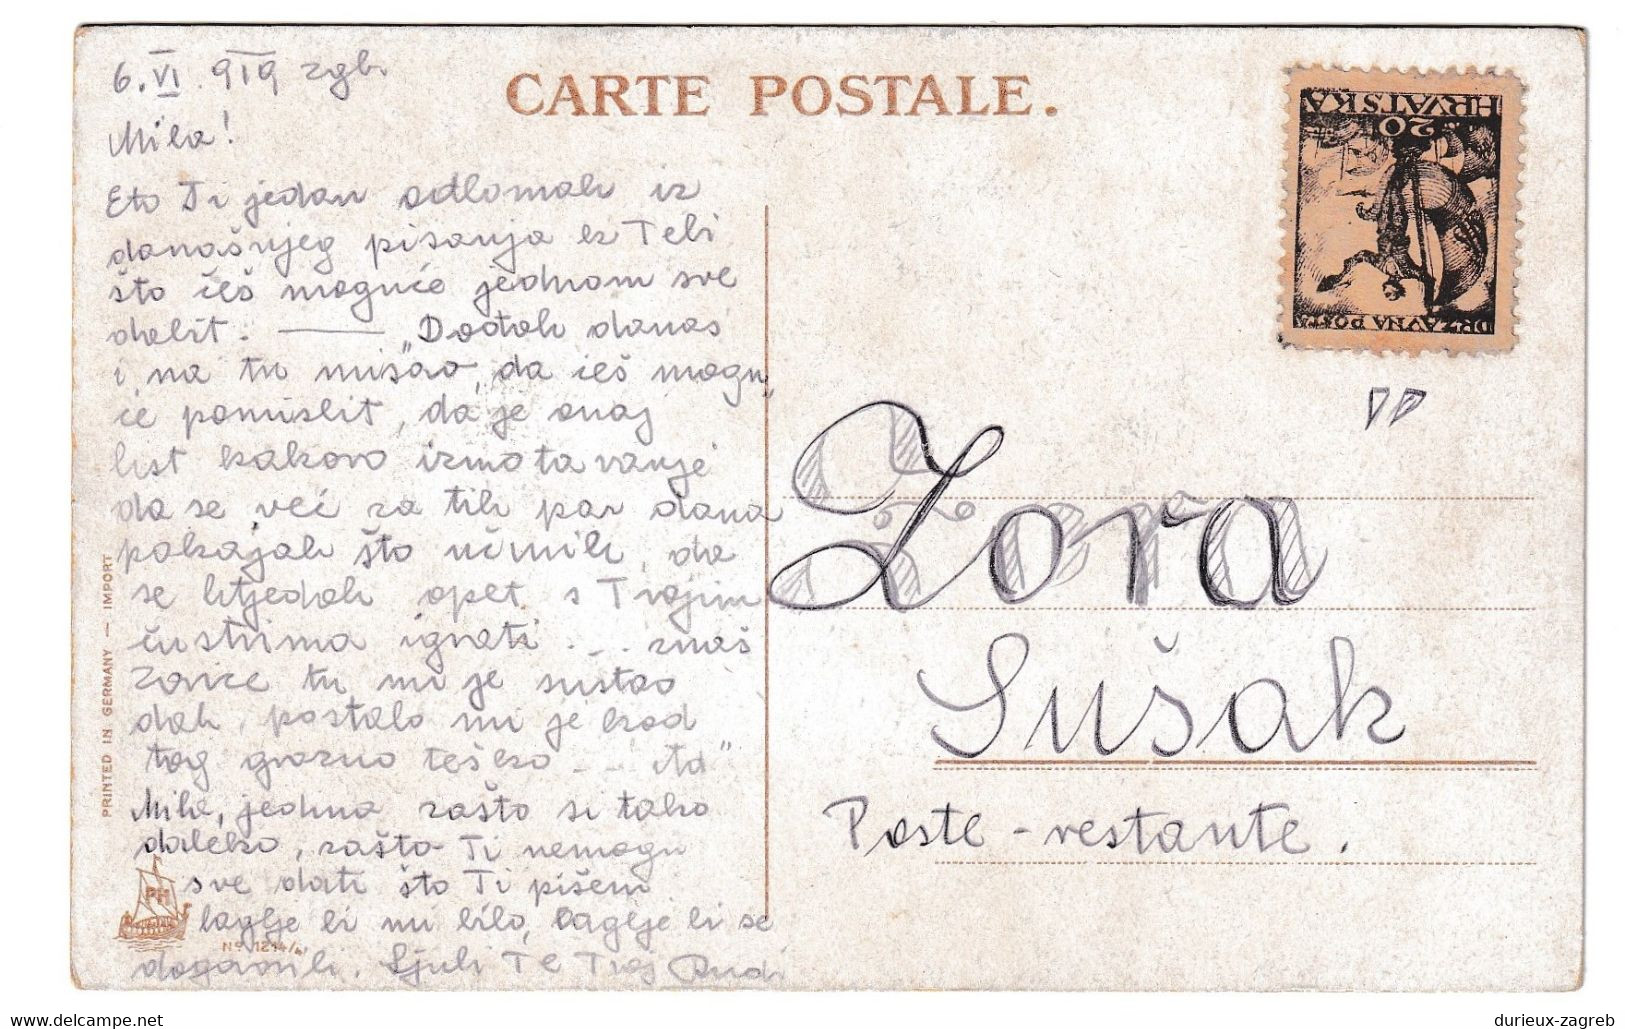 6. VI. 919 zgb.
CARTE POSTALE.
Mila!
Eto Ti jedan odlomak iz
današnjeg pisanja k Tebi
što ćeš moguće jednom sve
dobit. — "Dođoh danas
i na tu misao, da ćeš mogu„
će pomislit, da je onaj
list kakovo izmotavanje
da se već za tih par dana
pokajah što učinih, da
se htjedoh opet s Tvojim
čustvima igrati ... znaš
Zorice tu mi je sustao
dah, postalo mi je kod
tog grozno teško ... itd"
Mila, jedina zašto si tako
daleko, zašto Ti nemogu
sve dati što Ti pišem
laglje bi mi bilo, laglje bi se
dogovorili. Ljubi Te Tvoj Rudi
HRVATSKA
20
DRŽAVNA POŠTA
Zora
Sušak
Poste-restante.
PRINTED IN GERMANY — IMPORT
PH
No 1214/
delcampe.net
durieux-zagreb